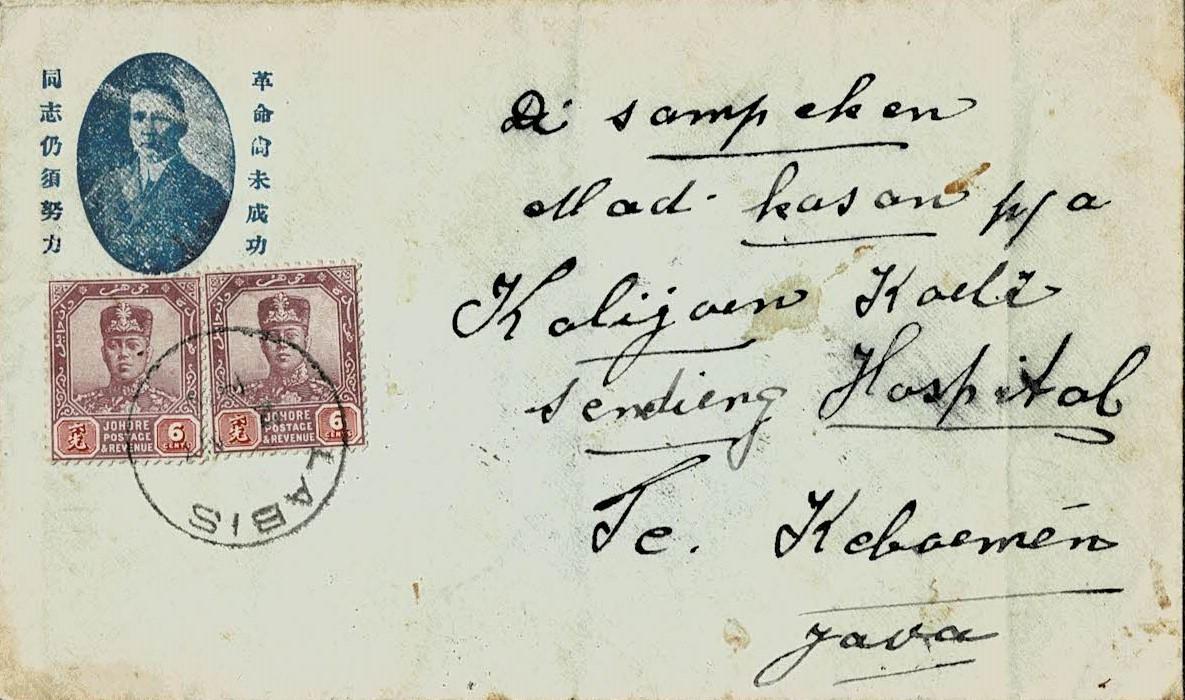 革命尚未成功
同志仍須努力
Di sampeken
Mad. kasan p/a
Kalijoen Koelt
sendieng Hospital
Te. Keboemén
Java
JOHORE
POSTAGE
& REVENUE
6
CENTS
JOHORE
POSTAGE
& REVENUE
6
CENTS
LABIS